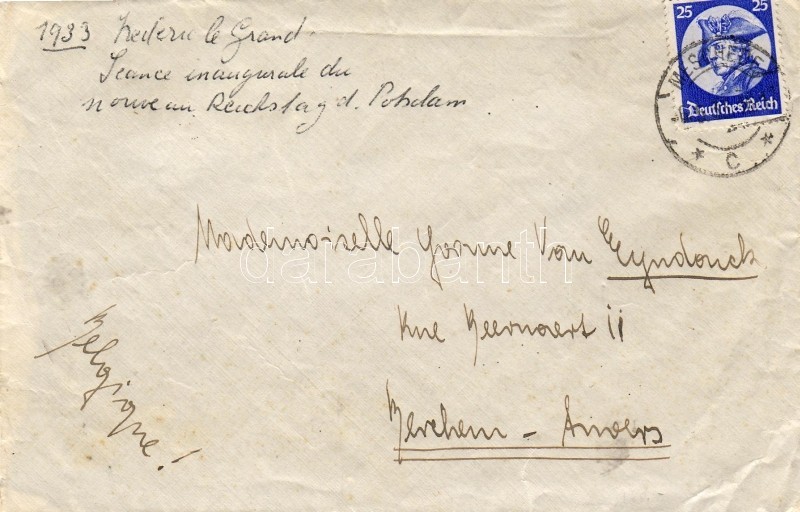 1933 Frederic le Grand.
Seance inaugurale du
nouveau Reichstag d. Potsdam
25 25
Deutsches Reich
MESCHEDE
* C *
Mademoiselle Yvonne Van Eyndonck
darabanth
Rue Beernaert 11
Berchem - Anvers
Belgique!